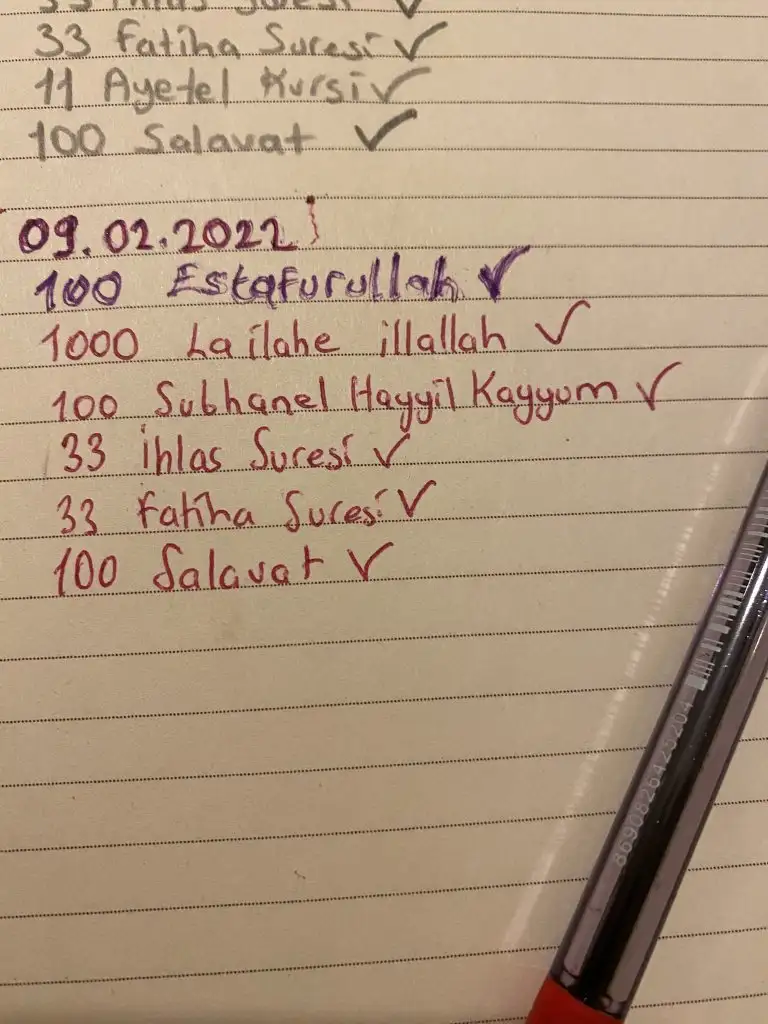 33 İhlas Suresi ✓
33 Fatiha Suresi ✓
11 Ayetel Kursi ✓
100 Salavat ✓
09.02.2022
100 Estafurullah ✓
1000 La ilahe illallah ✓
100 Subhanel Hayyil Kayyum ✓
33 İhlas Suresi ✓
33 Fatiha Suresi ✓
100 Salavat ✓
8690826425204